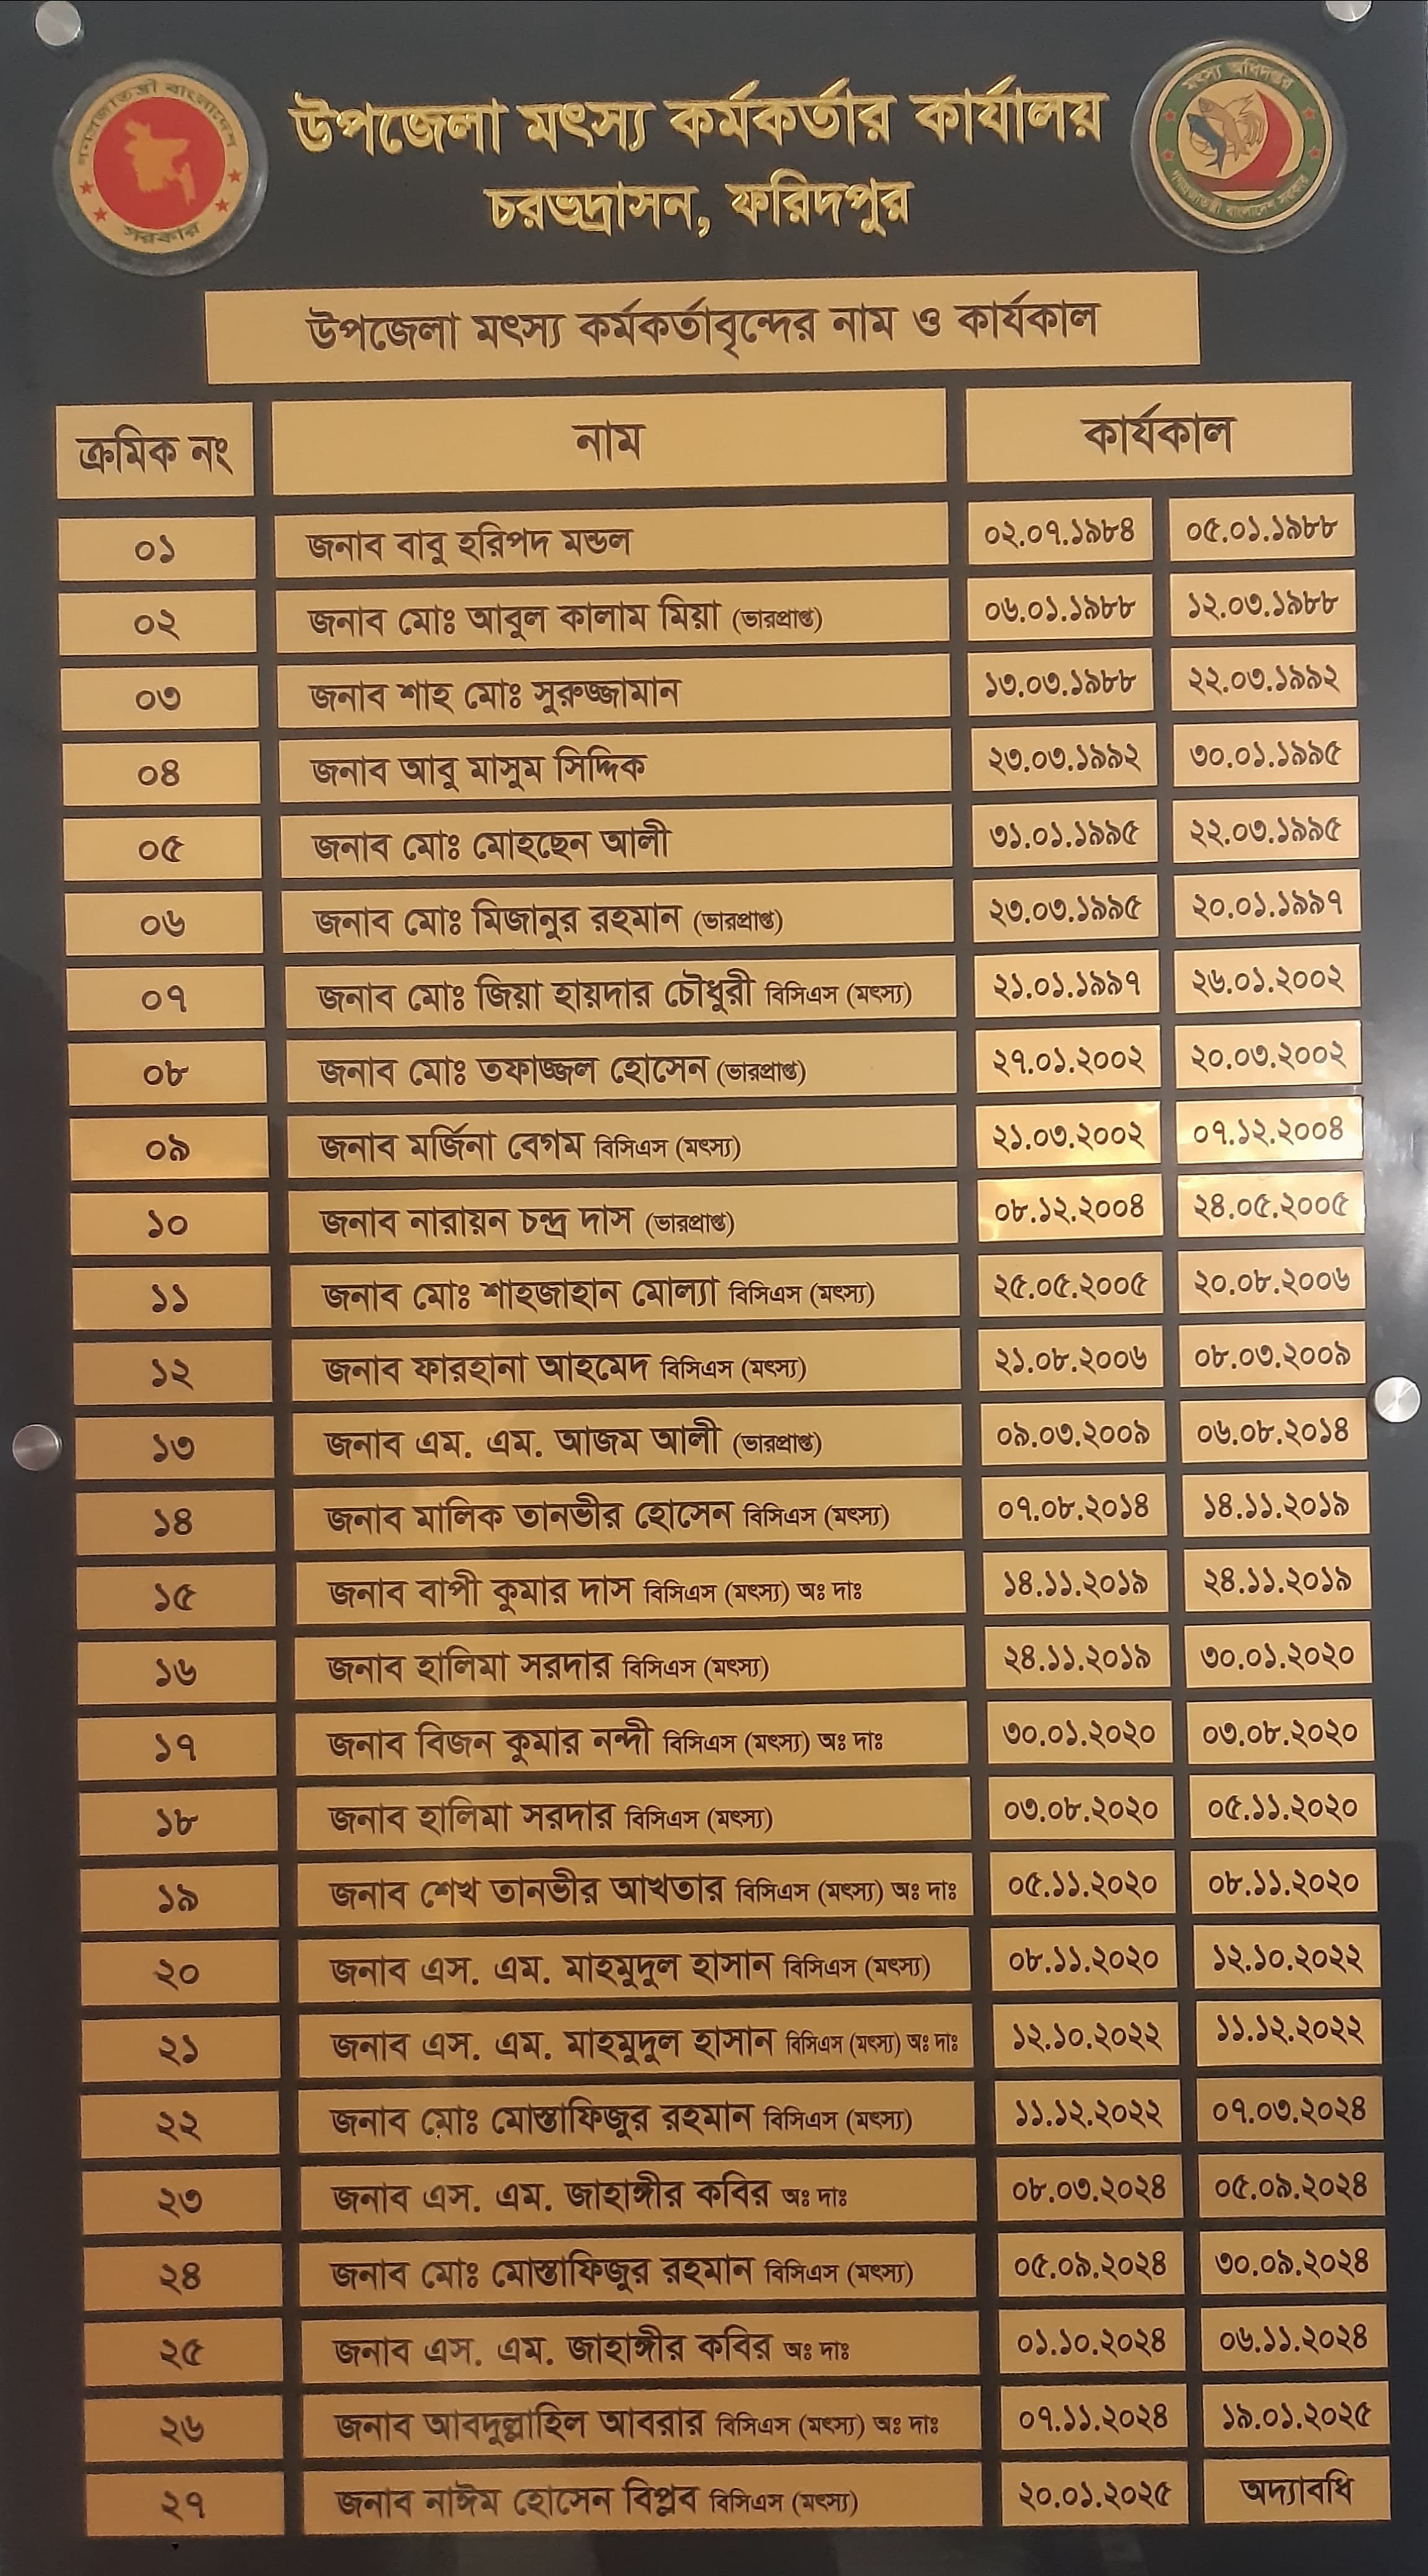 গণপ্রজাতন্ত্রী বাংলাদেশ
সরকার
মৎস্য অধিদপ্তর
গণপ্রজাতন্ত্রী বাংলাদেশ সরকার
উপজেলা মৎস্য কর্মকর্তার কার্যালয়
চরভদ্রাসন, ফরিদপুর
উপজেলা মৎস্য কর্মকর্তাবৃন্দের নাম ও কার্যকাল
ক্রমিক নং নাম কার্যকাল
০১ জনাব বাবু হরিপদ মন্ডল ০২.০৭.১৯৮৪ ০৫.০১.১৯৮৮
০২ জনাব মোঃ আবুল কালাম মিয়া (ভারপ্রাপ্ত) ০৬.০১.১৯৮৮ ১২.০৩.১৯৮৮
০৩ জনাব শাহ মোঃ সুরুজ্জামান ১৩.০৩.১৯৮৮ ২২.০৩.১৯৯২
০৪ জনাব আবু মাসুম সিদ্দিক ২৩.০৩.১৯৯২ ৩০.০১.১৯৯৫
০৫ জনাব মোঃ মোহছেন আলী ৩১.০১.১৯৯৫ ২২.০৩.১৯৯৫
০৬ জনাব মোঃ মিজানুর রহমান (ভারপ্রাপ্ত) ২৩.০৩.১৯৯৫ ২০.০১.১৯৯৭
০৭ জনাব মোঃ জিয়া হায়দার চৌধুরী বিসিএস (মৎস্য) ২১.০১.১৯৯৭ ২৬.০১.২০০২
০৮ জনাব মোঃ তফাজ্জল হোসেন (ভারপ্রাপ্ত) ২৭.০১.২০০২ ২০.০৩.২০০২
০৯ জনাব মর্জিনা বেগম বিসিএস (মৎস্য) ২১.০৩.২০০২ ০৭.১২.২০০৪
১০ জনাব নারায়ন চন্দ্র দাস (ভারপ্রাপ্ত) ০৮.১২.২০০৪ ২৪.০৫.২০০৫
১১ জনাব মোঃ শাহজাহান মোল্যা বিসিএস (মৎস্য) ২৫.০৫.২০০৫ ২০.০৮.২০০৬
১২ জনাব ফারহানা আহমেদ বিসিএস (মৎস্য) ২১.০৮.২০০৬ ০৮.০৩.২০০৯
১৩ জনাব এম. এম. আজম আলী (ভারপ্রাপ্ত) ০৯.০৩.২০০৯ ০৬.০৮.২০১৪
১৪ জনাব মালিক তানভীর হোসেন বিসিএস (মৎস্য) ০৭.০৮.২০১৪ ১৪.১১.২০১৯
১৫ জনাব বাপী কুমার দাস বিসিএস (মৎস্য) অঃ দাঃ ১৪.১১.২০১৯ ২৪.১১.২০১৯
১৬ জনাব হালিমা সরদার বিসিএস (মৎস্য) ২৪.১১.২০১৯ ৩০.০১.২০২০
১৭ জনাব বিজন কুমার নন্দী বিসিএস (মৎস্য) অঃ দাঃ ৩০.০১.২০২০ ০৩.০৮.২০২০
১৮ জনাব হালিমা সরদার বিসিএস (মৎস্য) ০৩.০৮.২০২০ ০৫.১১.২০২০
১৯ জনাব শেখ তানভীর আখতার বিসিএস (মৎস্য) অঃ দাঃ ০৫.১১.২০২০ ০৮.১১.২০২০
২০ জনাব এস. এম. মাহমুদুল হাসান বিসিএস (মৎস্য) ০৮.১১.২০২০ ১২.১০.২০২২
২১ জনাব এস. এম. মাহমুদুল হাসান বিসিএস (মৎস্য) অঃ দাঃ ১২.১০.২০২২ ১১.১২.২০২২
২২ জনাব মোঃ মোস্তাফিজুর রহমান বিসিএস (মৎস্য) ১১.১২.২০২২ ০৭.০৩.২০২৪
২৩ জনাব এস. এম. জাহাঙ্গীর কবির অঃ দাঃ ০৮.০৩.২০২৪ ০৫.০৯.২০২৪
২৪ জনাব মোঃ মোস্তাফিজুর রহমান বিসিএস (মৎস্য) ০৫.০৯.২০২৪ ৩০.০৯.২০২৪
২৫ জনাব এস. এম. জাহাঙ্গীর কবির অঃ দাঃ ০১.১০.২০২৪ ০৬.১১.২০২৪
২৬ জনাব আবদুল্লাহিল আবরার বিসিএস (মৎস্য) অঃ দাঃ ০৭.১১.২০২৪ ১৯.০১.২০২৫
২৭ জনাব নাঈম হোসেন বিপ্লব বিসিএস (মৎস্য) ২০.০১.২০২৫ অদ্যাবধি